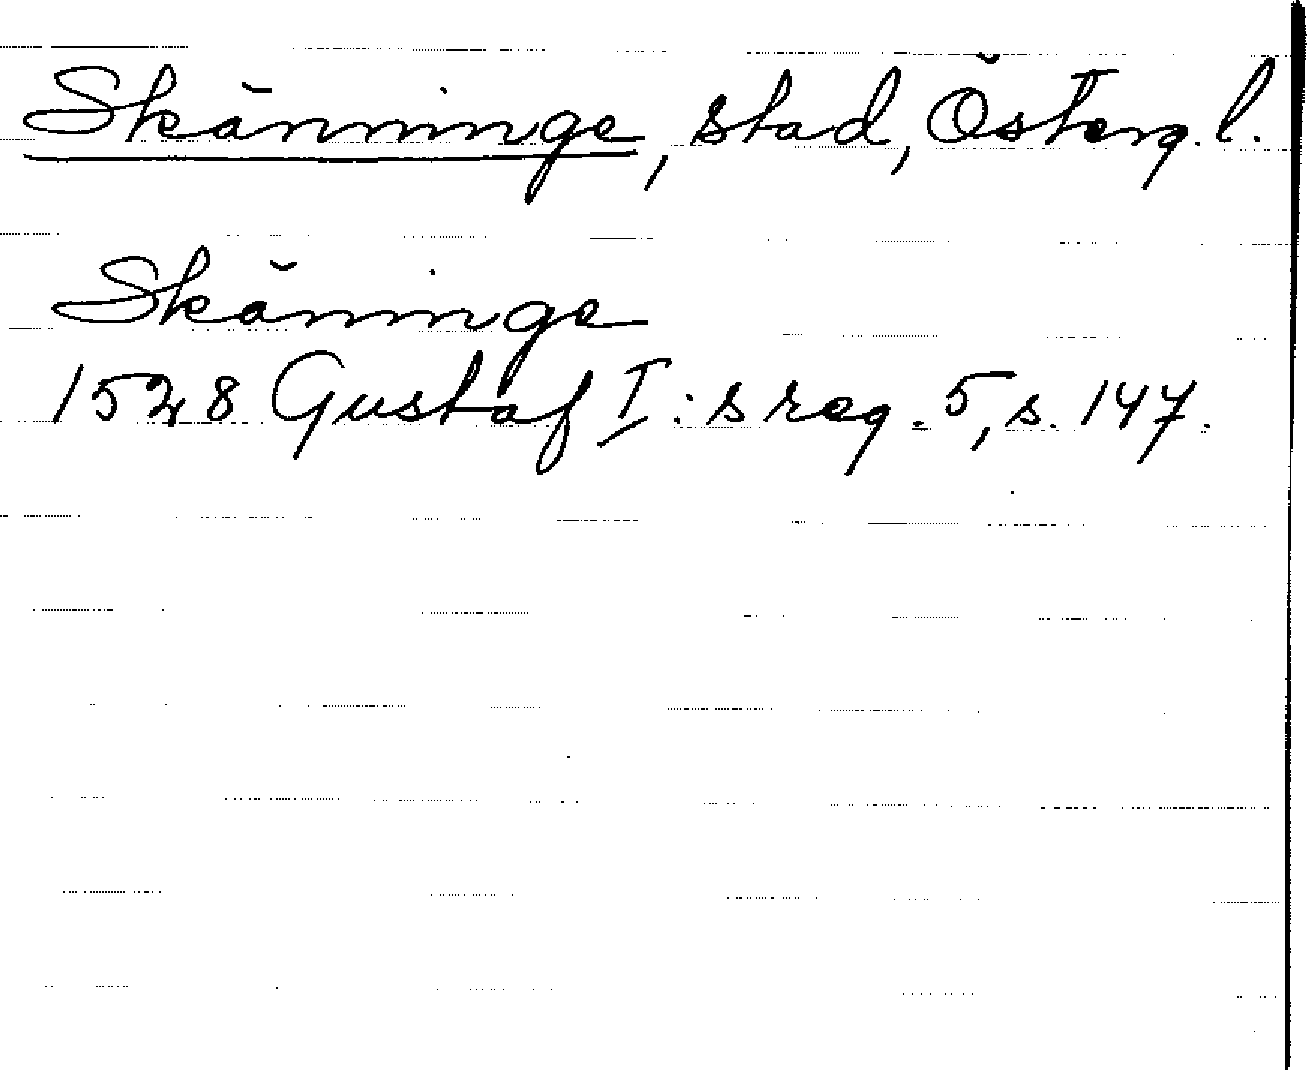 Skänninge, stad, Österg. l.
Skäninge
1528 Gustaf I:s reg. 5, s. 147.